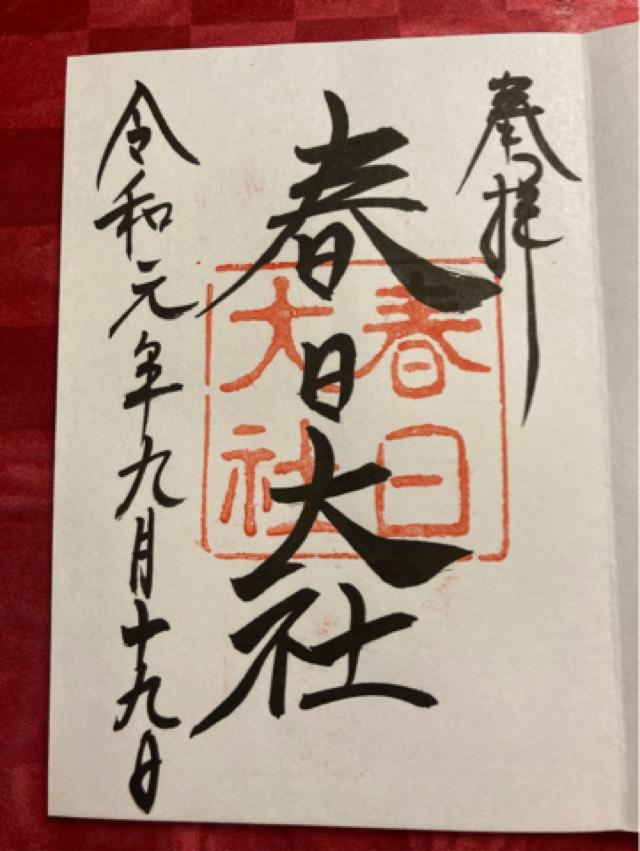 奉拝
春日大社
春日
大社
令和元年九月十九日